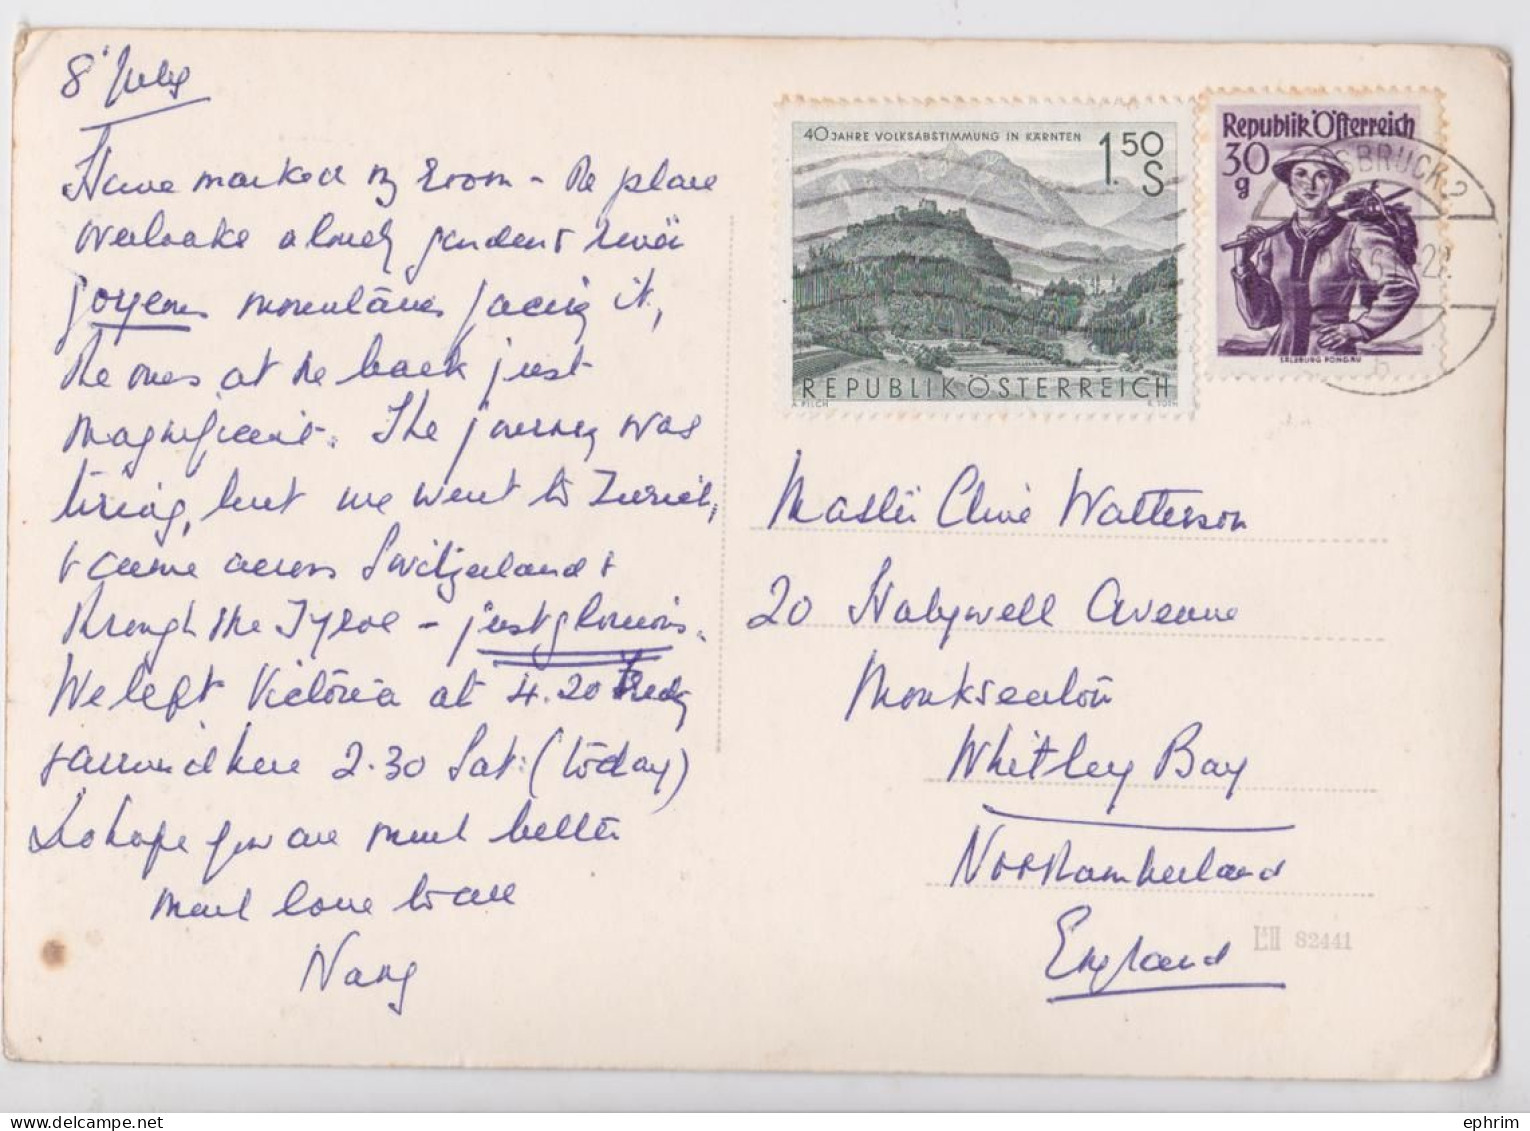 8 July
Have marked my room - the place
overlooks a lovely garden & river
joyeous mountains facing it,
the ones at the back just
magnificent. The journey was
tiring, but we went to Zurich,
& came across Switzerland &
through the Tyrol - just glorious.
We left Victoria at 4.20 Friday
& arrived here 2.30 Sat. (today)
Do hope you are much better
Much love to all
Nany
40 JAHRE VOLKSABSTIMMUNG IN KÄRNTEN
1.50 S
REPUBLIK ÖSTERREICH
A. PILCH
Republik Österreich
30 g
SALZBURG PONGAU
SBRUCK 2
Master Clive Watterson
20 Holywell Avenue
Monkseaton
Whitley Bay
Northumberland
England
82441
ephrim